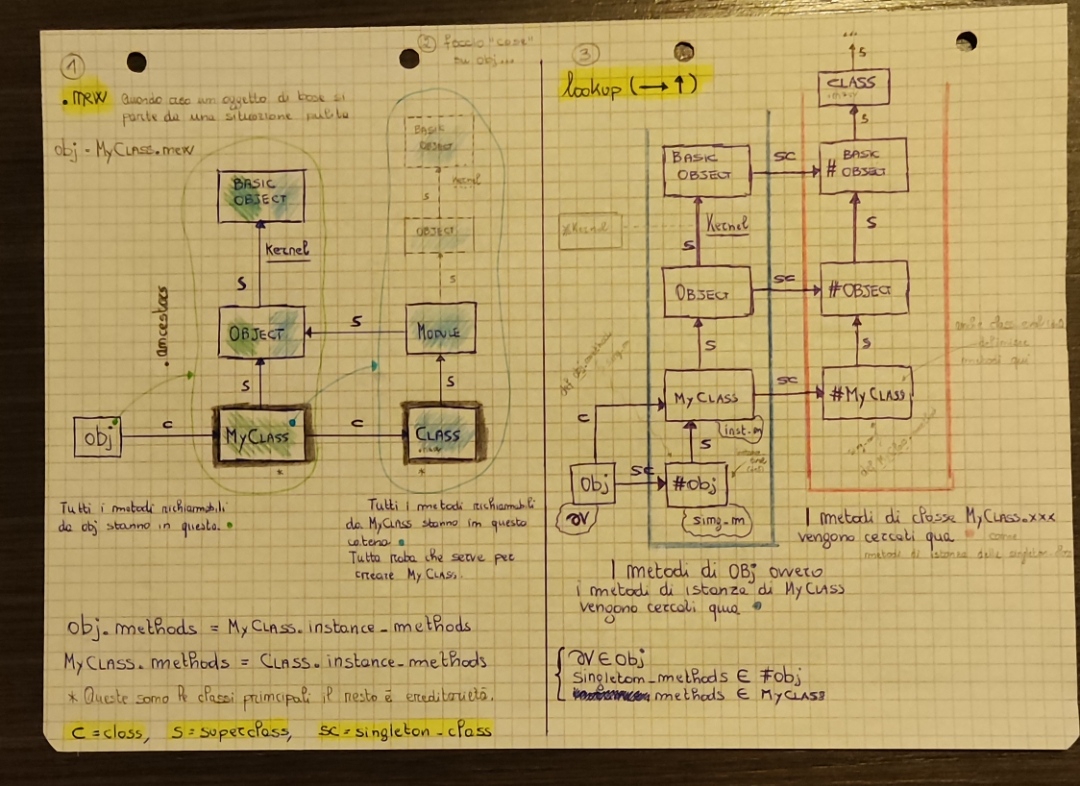 1
.new Quando creo un oggetto di base si
parte da una situazione pulita
obj = MyCLASS.new
2 faccio "cose"
su obj...
BASIC
OBJECT
Kernel
S
OBJECT
S
MyCLASS
.ancestors
obj
C
C
BASIC
OBJECT
Kernel
S
OBJECT
S
MODULE
S
S
CLASS
.new
*
*
Tutti i metodi richiamabili
da obj stanno in questa.
Tutti i metodi richiamabili
da MyCLASS stanno in questa
catena
Tutta roba che serve per
creare MyCLASS.
obj.methods = MyCLASS.instance_methods
MyCLASS.methods = CLASS.instance_methods
* Queste sono le classi principali il resto è ereditarietà.
C = class, S = superclass, SC = singleton_class
3
lookup (→↑)
...
S
CLASS
.new
S
BASIC
OBJECT
SC
#BASIC
OBJECT
#Kernel
Kernel
S
S
OBJECT
SC
#OBJECT
S
S
MyCLASS
SC
#MyCLASS
C
inst_m
S
obj
SC
#obj
sing_m
I metodi di classe MyCLASS.xxx
vengono cercati qua come
metodi di istanza della singleton
I metodi di OBJ ovvero
i metodi di istanza di MyCLASS
vengono cercati qua
∈ Obj
singleton_methods ∈ #obj
methods ∈ MyCLASS